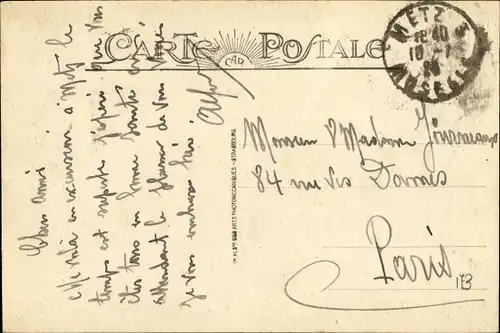 CARTE POSTALE
CAP
METZ
18 40
10 - 7
MOSELLE
Chers amis
Me voilà en excursion à Metz le
temps est superbe j'espère que vous
êtes tous en bonne santé en
attendant le plaisir de vous
je vous embrasse
Monsieur & Madame
84 rue des Dames
Paris
Cie ALSne DES ARTS PHOTOMECANIQUES - STRASBOURG